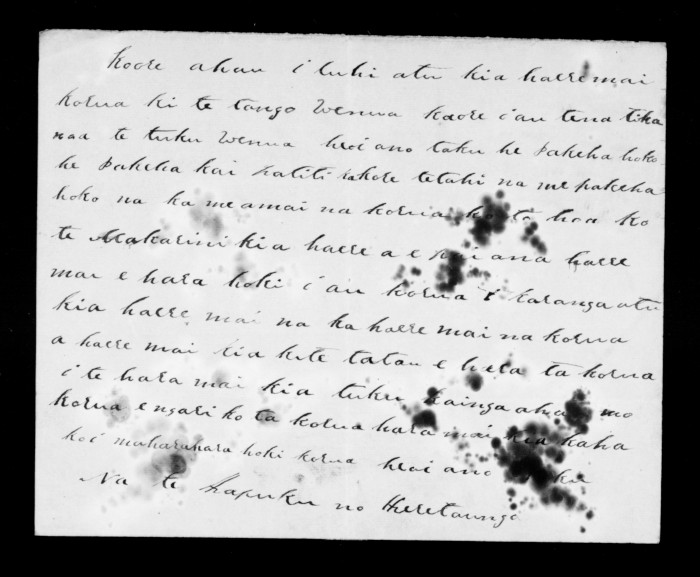 koore ahau i tuhi atu kia haere mai
korua ki te tango Wenua kaore i au tena tika
naa te tuku Wenua heoi ano taku he pakeha hoko
he pakeha kai tetahi na me pakeha
hoko na ka mea mai na korua ta hoa ko
te Makarini kia haere a e pai ana haere
mai e hara hoki i au korua i karanga atu
kia haere mai na ka haere mai na korua
a haere mai kia kite tatau e hara ta korua
i te hara mai kia tuku kainga ahau mo
korua engari ko ta korua hara mai kia kaha
koi maharahara hoki korua heoi ano
Na te Hapuku no Heretaunga